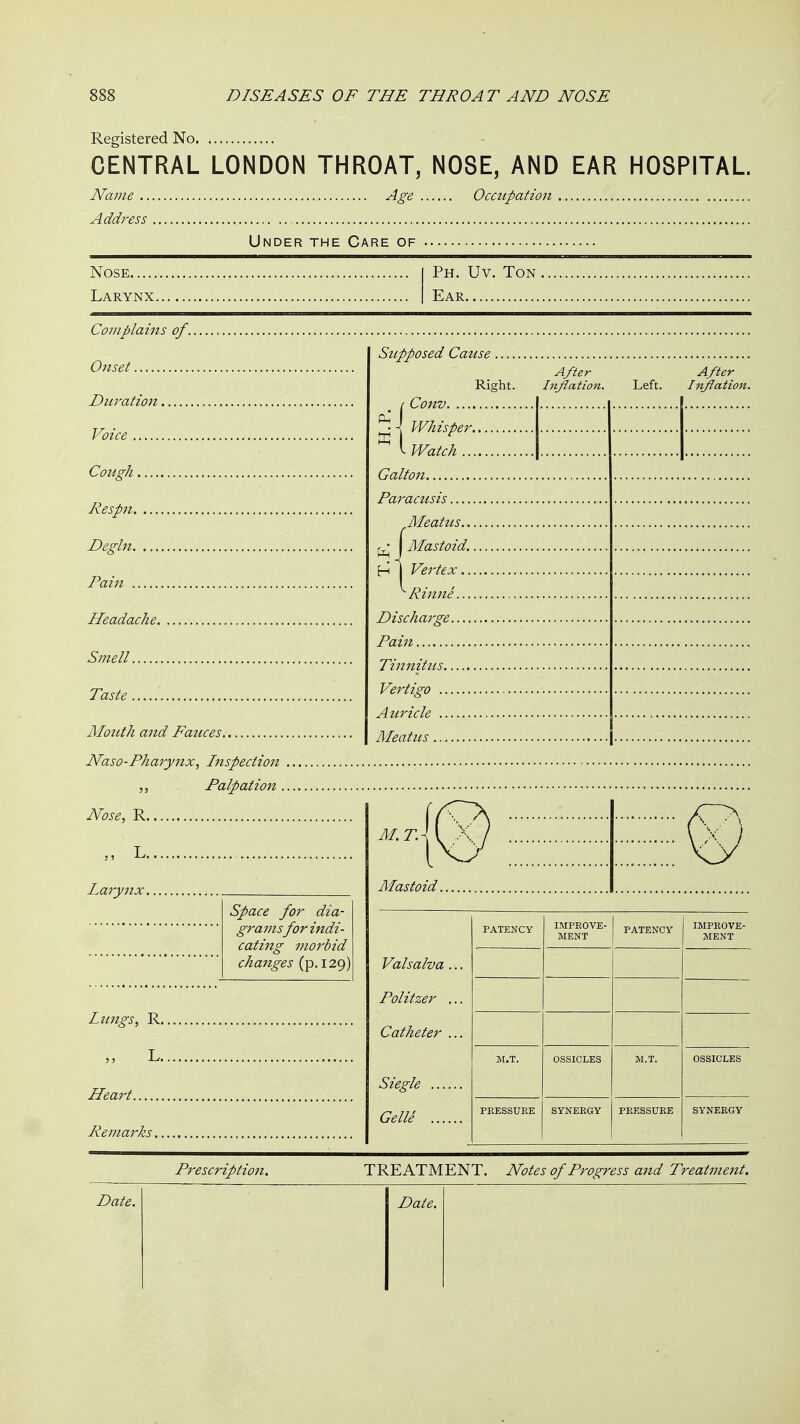 888 DISEASES OF THE THROAT AND NOSE
Registered No. ............
CENTRAL LONDON THROAT, NOSE, AND EAR HOSPITAL.
Name ............ Age ...... Occupation ............
Address ............
UNDER THE CARE OF ............
NOSE............ PH. UV. TON............
LARYNX............ EAR............
Complains of............
Onset............
Duration............
Voice............
Cough............
Respn. ............
Degln. ............
Pain ............
Headache. ............
Smell............
Taste............
Mouth and Fauces............
Supposed Cause............
Right. After Inflation. Left. After Inflation.
H.P. { Conv. ............
Whisper............
Watch............
Galton............
Paracusis............
T.F. { Meatus............
Mastoid............
Vertex............
Rinné............
Discharge............
Pain............
Tinnitus............
Vertigo ............
Auricle ............
Meatus ............
Naso-Pharynx, Inspection ............
,, Palpation ............
Nose, R............
,, L............
Larynx............
Space for dia-
grams for indi-
cating morbid
changes (p. 129)
Lungs, R............
,, L............
Heart............
Remarks............
M. T. {
Mastoid............
PATENCY IMPROVE-MENT PATENCY IMPROVE-MENT
Valsalva ...
Politzer ...
Catheter ...
M.T. OSSICLES M.T. OSSICLES
Siegle ......
PRESSURE SYNERGY PRESSURE SYNERGY
Gellé ......
Prescription. TREATMENT. Notes of Progress and Treatment.
Date. Date.